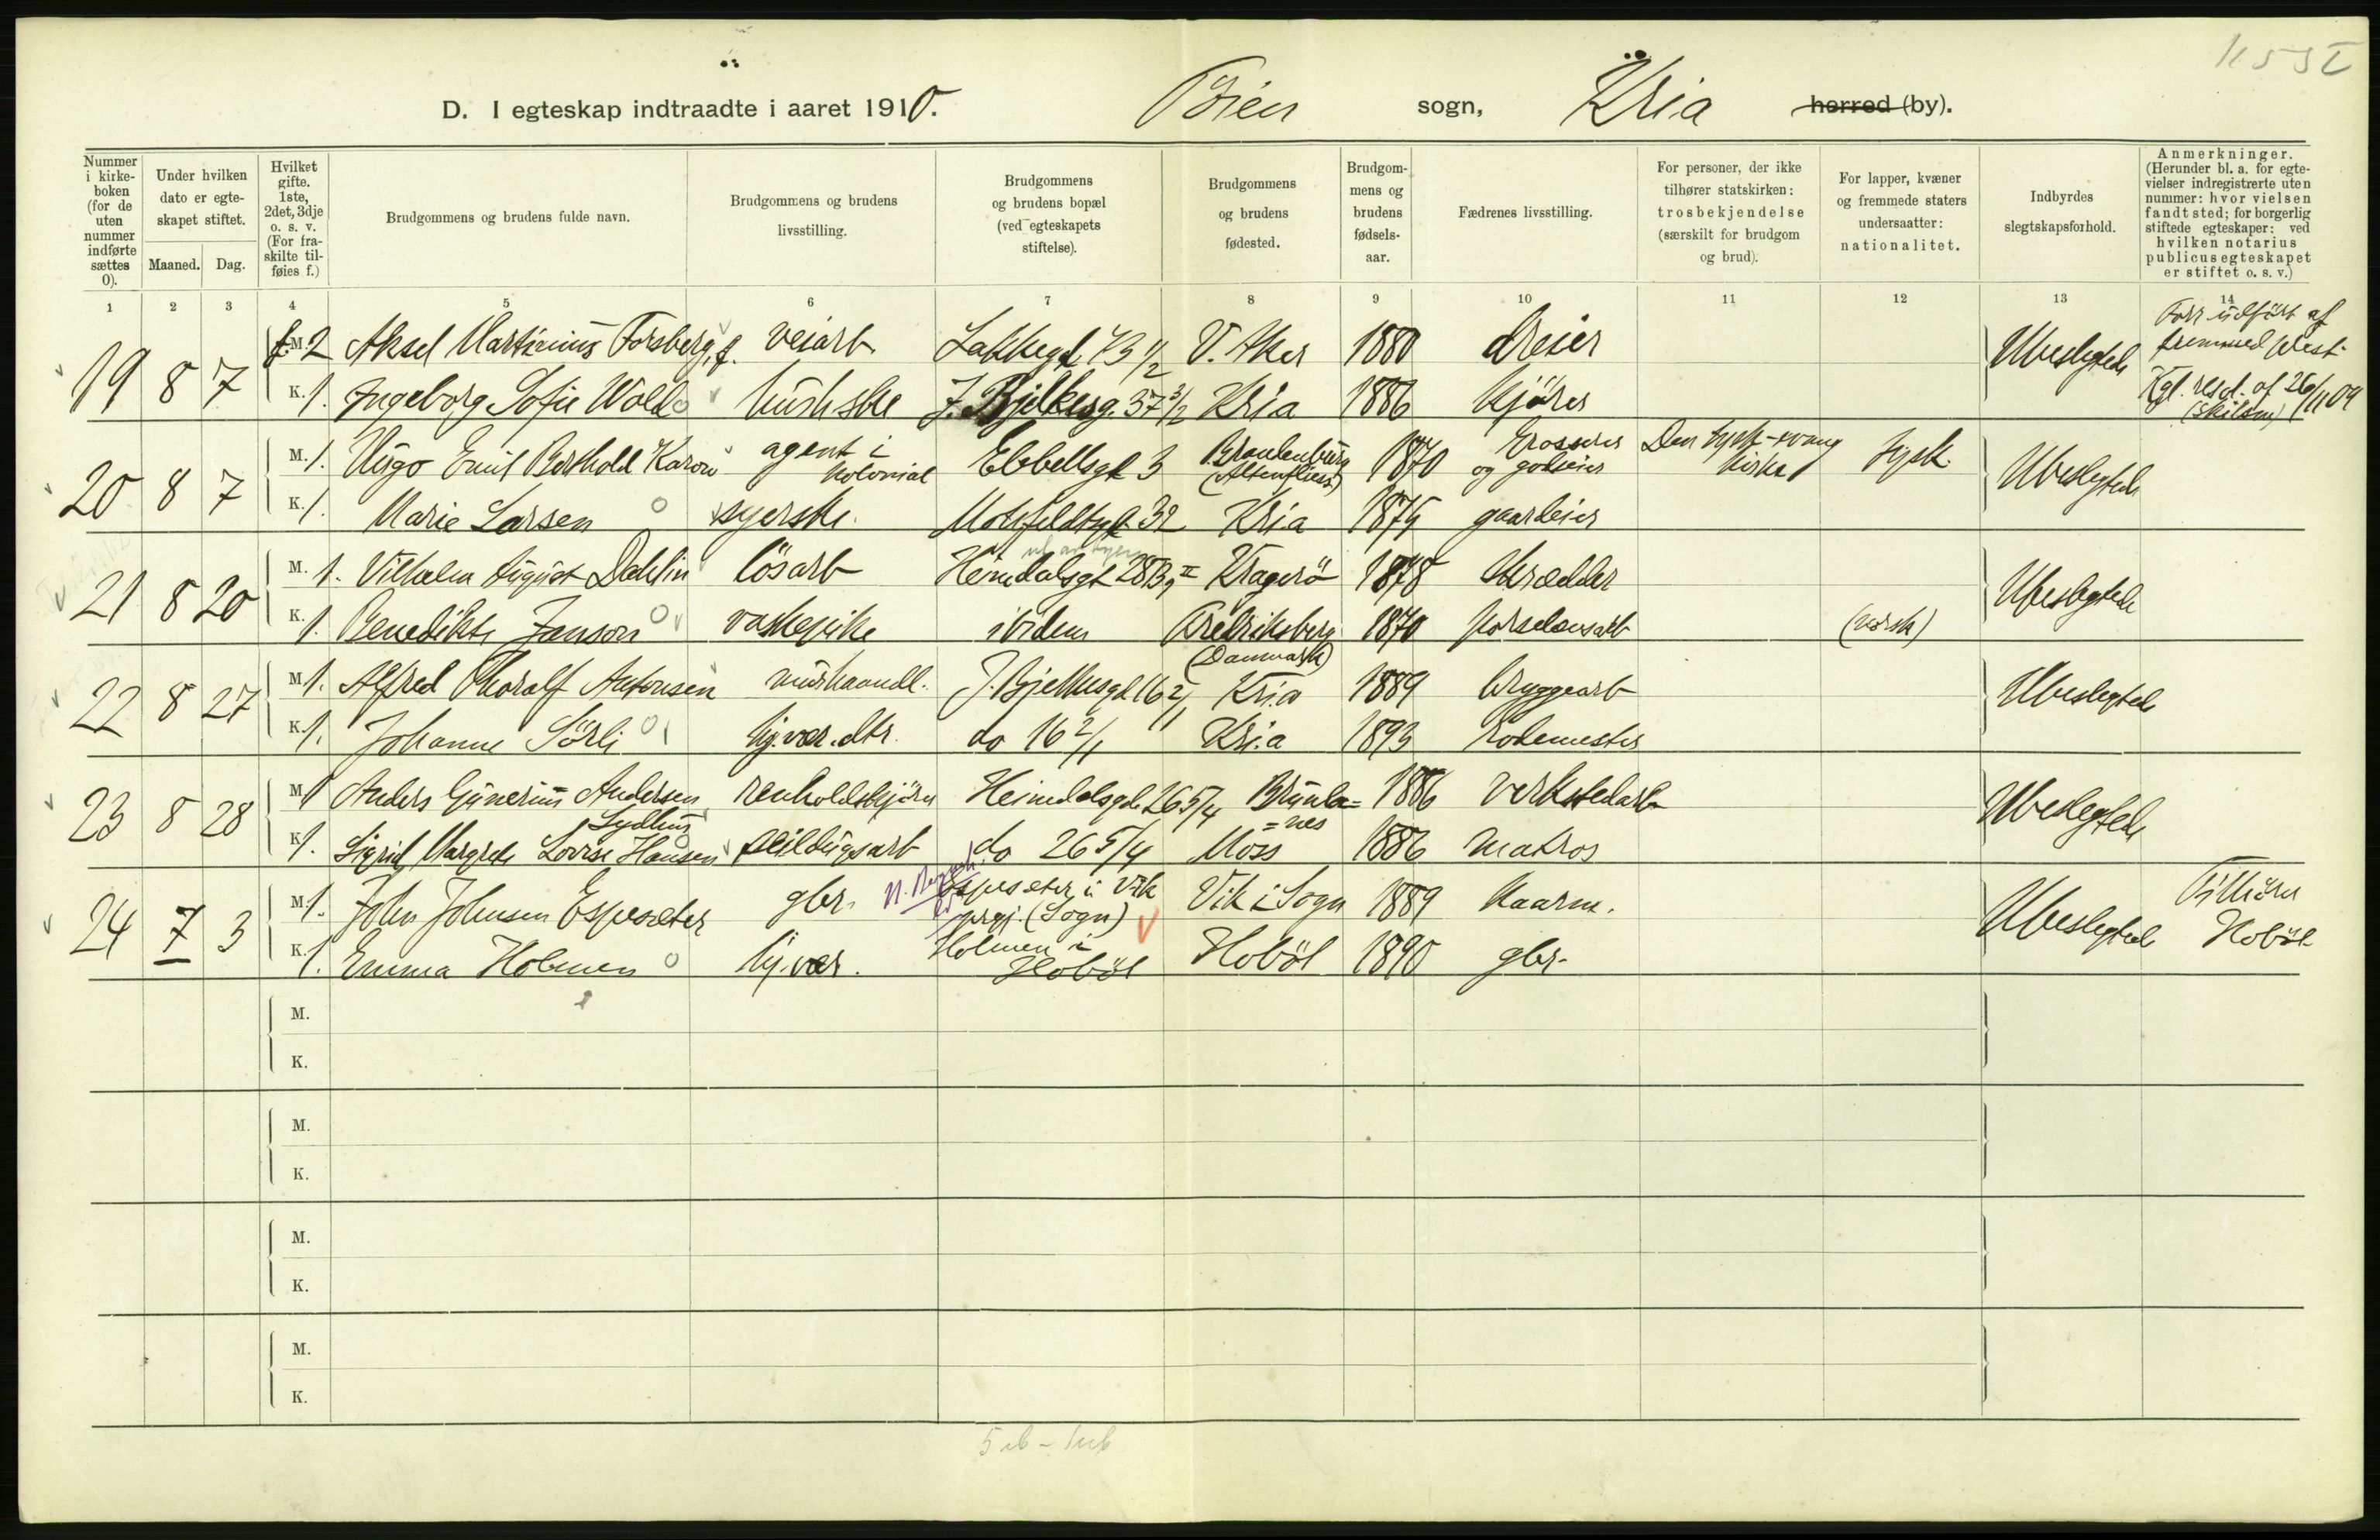 D. I egteskap indtraadte i aaret 1910. sogn, Kria herred (by).
Nummer i kirkeboken (for de uten nummer indførte sættes 0).
Under hvilken dato er egteskapet stiftet.
Maaned. Dag.
Hvilket gifte. 1ste, 2det, 3dje o. s. v. (For fraskilte tilføies f.)
Brudgommens og brudens fulde navn.
Brudgommens og brudens livsstilling.
Brudgommens og brudens bopæl (ved egteskapets stiftelse).
Brudgommens og brudens fødested.
Brudgommens og brudens fødselsaar.
Fædrenes livsstilling.
For personer, der ikke tilhører statskirken: trosbekjendelse (særskilt for brudgom og brud).
For lapper, kvæner og fremmede staters undersaatter: nationalitet.
Indbyrdes slegtskapsforhold.
Anmerkninger. (Herunder bl. a. for egtevielser indregistrerte uten nummer: hvor vielsen fandt sted; for borgerlig stiftede egteskaper: ved hvilken notarius publicus egteskapet er stiftet o. s. v.)
1 2 3 4 5 6 7 8 9 10 11 12 13 14
19 8 7 M. 2 Aksel Martinius Forsberg, f. veiarb. Lakkegt 73 1/2 V. Aker 1880 dreier Ubeslegtede Forr. udført af fremmed prest.
K. 1. Ingeborg Sofie Wold J. Bjelkesg. 37 3/2 Kria 1886 kjører Kgl. resol. af 26/11 09 (skilsm)
20 8 7 M. 1. Hugo Emil Berthold Karow agent i kolonial Ebbellsgt 3 Brandenburg 1870 Grosserer og godseier Den tysk-evang kirke tysk Ubeslegtede
K. 1. Marie Larsen syerske. Motzfeldtsgt 32 Kria 1875 gaardeier
21 8 20 M. 1. Vilhelm August Dahlin løsarb Heimdalsgt 28 II Kragerö 1878 skrædder Ubeslegtede
K. 1. Benedikte Janson vaskepike ibidem Fredriksberg (Danmark) 1870 porselænsarb (norsk)
22 8 27 M. 1. Alfred Thoralf Antonsen murhaandl. J. Bjelkesgt 16 2/1 Kria 1889 bryggearb Ubeslegtede
K. 1. Johanne Sörli hj.vær. dtr. do 16 2/1 Kria 1893 rodemester
23 8 28 M. 1 Anders Gunerius Andersen Lydhus renholdskjörer Heimdalsgt 26 5/4 Brunla=nes 1886 verkstedarb Ubeslegtede
K. 1. Sigrid Margrete Lovise Hansen seildugsarb do 26 5/4 Moss 1886 matros
24 7 3 M. 1. John Johnsen Espesæter gbr. Espesæter i Vik prgj. (Sogn) Vik i Sogn 1889 kaarm. Ubeslegtede Tilhörer Hoböl
K. 1. Emma Holmen hj.vær. Holmen i Hoböl Hoböl 1890 gbr.
M.
K.
M.
K.
M.
K.
M.
K.